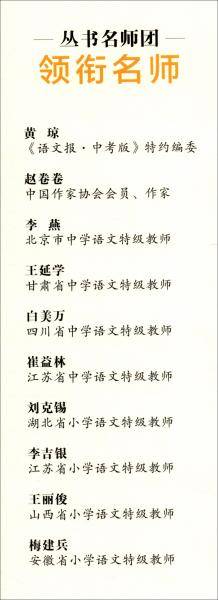 丛书名师团
领衔名师
黄 琼
《语文报·中考版》特约编委
赵卷卷
中国作家协会会员、作家
李 燕
北京市中学语文特级教师
王延学
甘肃省中学语文特级教师
白美万
四川省中学语文特级教师
崔益林
江苏省中学语文特级教师
刘克锡
湖北省小学语文特级教师
李吉银
江苏省小学语文特级教师
王丽俊
山西省小学语文特级教师
梅建兵
安徽省小学语文特级教师